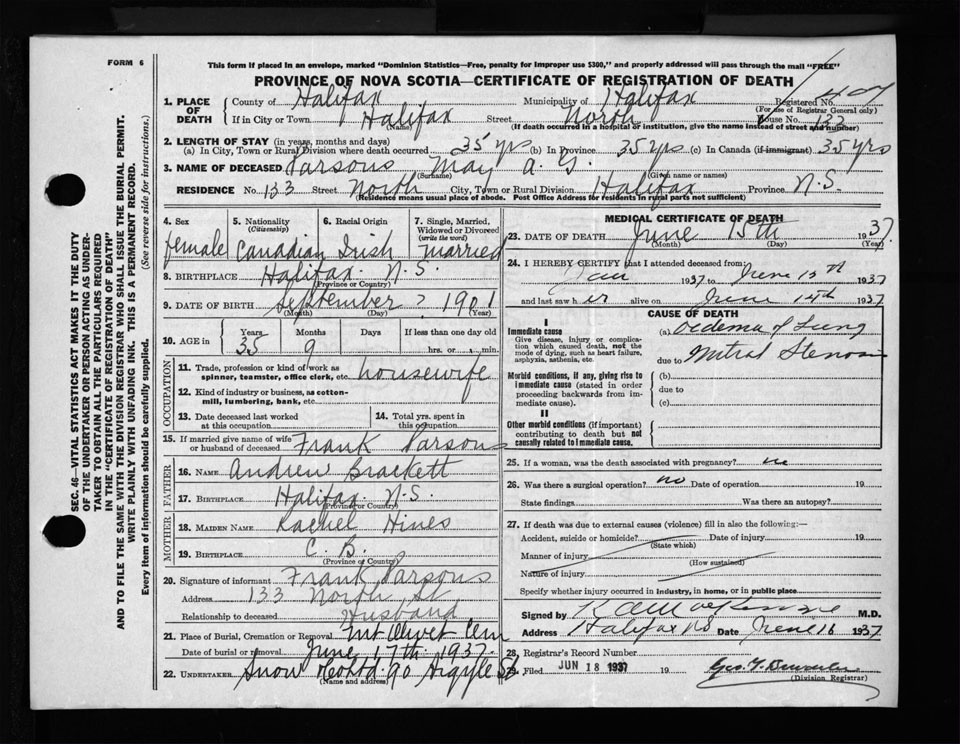 FORM 6
This form if placed in an envelope, marked "Dominion Statistics—Free, penalty for improper use $300," and properly addressed will pass through the mail "FREE"
PROVINCE OF NOVA SCOTIA—CERTIFICATE OF REGISTRATION OF DEATH
1. PLACE OF DEATH
County of Halifax Municipality of Halifax Registered No. 407
(For use of Registrar General only)
If in City or Town Halifax Street North House No. 133
(Name) (If death occurred in a hospital or institution, give the name instead of street and number)
2. LENGTH OF STAY (in years, months and days)
(a) In City, Town or Rural Division where death occurred 35 yrs (b) In Province 35 yrs (c) In Canada (if immigrant) 35 yrs
3. NAME OF DECEASED Parsons May A. G.
(Surname) (Given name or names)
RESIDENCE No 133 Street North City, Town or Rural Division Halifax Province N.S.
(Residence means usual place of abode. Post Office Address for residents in rural parts not sufficient)
4. Sex
female
5. Nationality
(Citizenship)
Canadian
6. Racial Origin
Irish
7. Single, Married, Widowed or Divorced
(write the word)
Married
8. BIRTHPLACE Halifax. N.S.
(Province or Country)
9. DATE OF BIRTH September ? 1901
(Month) (Day) (Year)
10. AGE in Years Months Days If less than one day old
35 9 hrs. or min.
OCCUPATION
11. Trade, profession or kind of work as spinner, teamster, office clerk, etc. housewife
12. Kind of industry or business, as cotton-mill, lumbering, bank, etc.
13. Date deceased last worked at this occupation
14. Total yrs. spent in this occupation
15. If married give name of wife or husband of deceased Frank Parsons
FATHER
16. NAME Andrew Brackett
17. BIRTHPLACE Halifax. N.S.
(Province or Country)
MOTHER
18. MAIDEN NAME Rachel Hines
19. BIRTHPLACE C. B.
(Province or Country)
20. Signature of informant Frank Parsons
Address 133 North St
Relationship to deceased Husband
21. Place of Burial, Cremation or Removal Mt Olivet Cem
Date of burial or removal June 17th. 1937.
22. UNDERTAKER Snow & Co Ltd 90 Argyle St
(Name and address)
MEDICAL CERTIFICATE OF DEATH
23. DATE OF DEATH June 15th 1937
(Month) (Day) (Year)
24. I HEREBY CERTIFY that I attended deceased from:
Jan 1937 to June 15th 1937
and last saw her alive on June 14th 1937
CAUSE OF DEATH
I
Immediate cause
Give disease, injury or complication which caused death, not the mode of dying, such as heart failure, asphyxia, asthenia, etc.
(a) Oedema of Lung
due to Mitral Stenosis
Morbid conditions, if any, giving rise to immediate cause (stated in order proceeding backwards from immediate cause).
(b)
due to
(c)
II
Other morbid conditions (if important) contributing to death but not causally related to immediate cause.
25. If a woman, was the death associated with pregnancy? no
26. Was there a surgical operation? no Date of operation 19
State findings Was there an autopsy?
27. If death was due to external causes (violence) fill in also the following:—
Accident, suicide or homicide? Date of injury 19
(State which)
Manner of injury
(How sustained)
Nature of injury
Specify whether injury occurred in industry, in home, or in public place
Signed by M.D.
Address Halifax NS Date June 16 1937
28. Registrar's Record Number
29. Filed JUN 18 1937 19
(Division Registrar)
SEC. 46—VITAL STATISTICS ACT MAKES IT THE DUTY
OF THE UNDERTAKER OR PERSON ACTING AS UNDERTAKER TO OBTAIN ALL THE PARTICULARS REQUIRED
IN THE "CERTIFICATE OF REGISTRATION OF DEATH"
AND TO FILE THE SAME WITH THE DIVISION REGISTRAR WHO SHALL ISSUE THE BURIAL PERMIT.
WRITE PLAINLY WITH UNFADING INK. THIS IS A PERMANENT RECORD.
Every item of information should be carefully supplied. (See reverse side for instructions.)